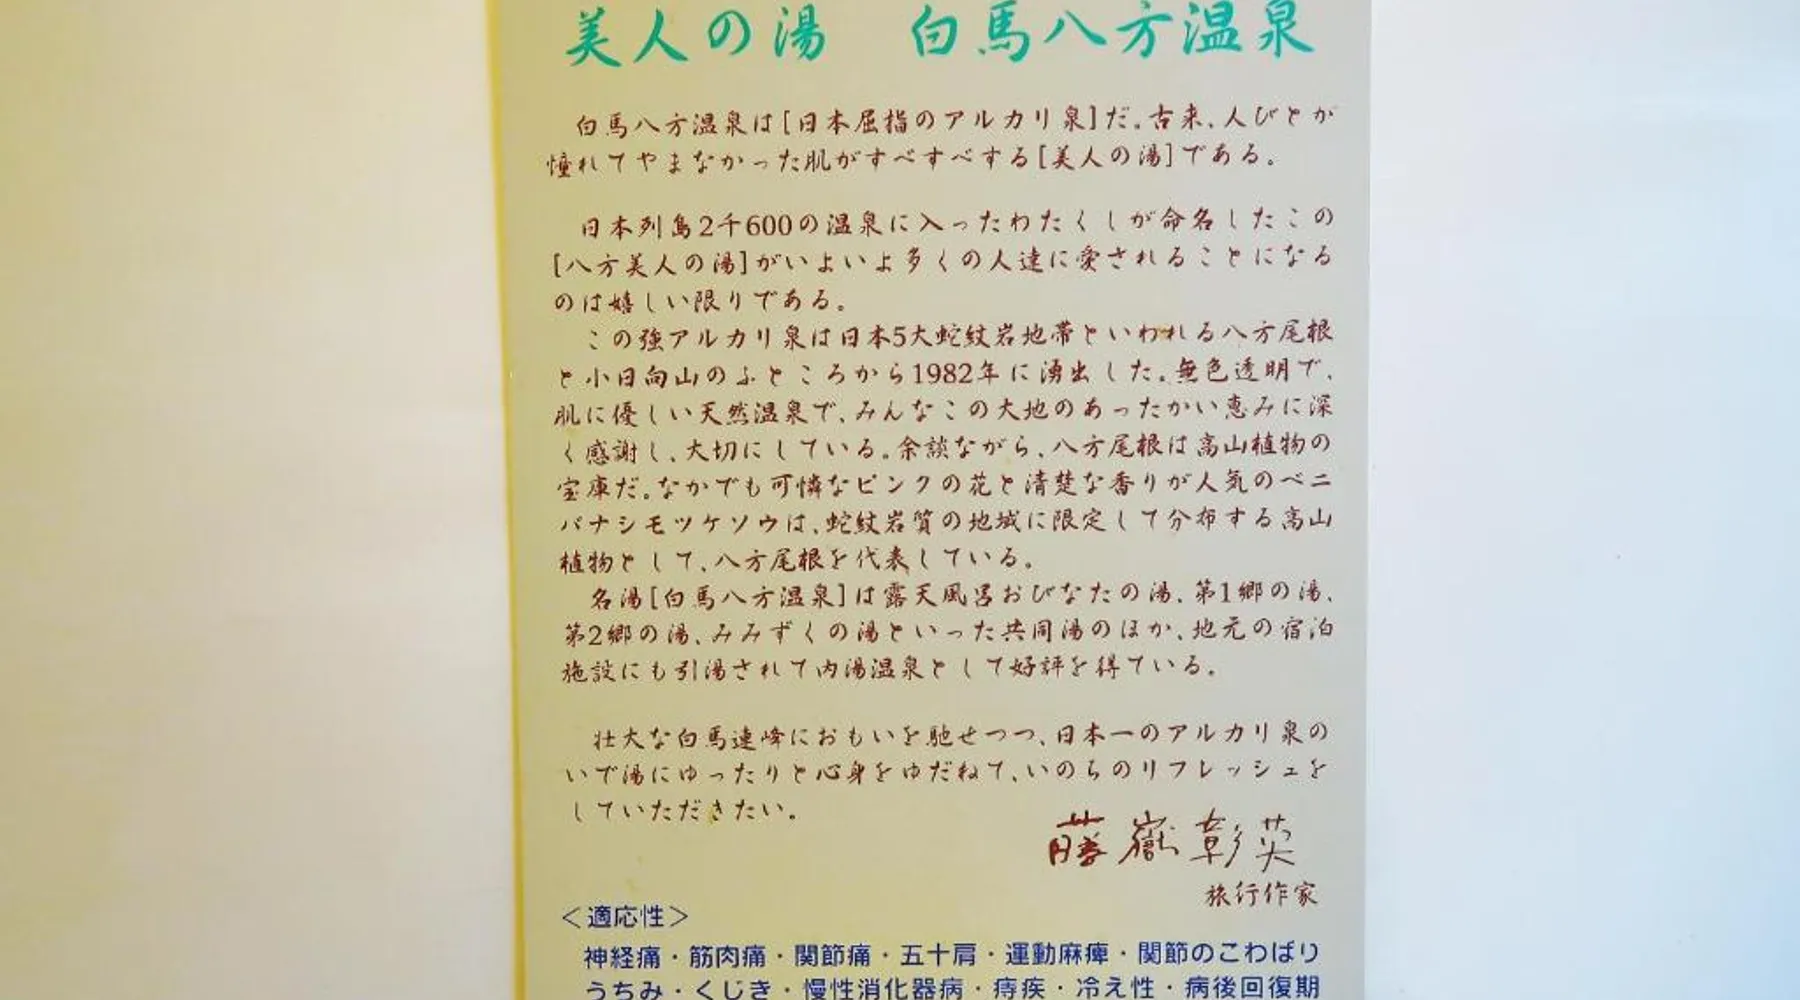 美人の湯　白馬八方温泉
白馬八方温泉は[日本屈指のアルカリ泉]だ。古来、人びとが
憧れてやまなかった肌がすべすべする[美人の湯]である。
日本列島2千600の温泉に入ったわたくしが命名したこの
[八方美人の湯]がいよいよ多くの人達に愛されることになる
のは嬉しい限りである。
この強アルカリ泉は日本5大蛇紋岩地帯といわれる八方尾根
と小日向山のふところから1982年に湧出した。無色透明で、
肌に優しい天然温泉で、みんなこの大地のあったかい恵みに深
く感謝し、大切にしている。余談ながら、八方尾根は高山植物の
宝庫だ。なかでも可憐なピンクの花と清楚な香りが人気のベニ
バナシモツケソウは、蛇紋岩質の地域に限定して分布する高山
植物として、八方尾根を代表している。
名湯[白馬八方温泉]は露天風呂おびなたの湯、第1郷の湯、
第2郷の湯、みみずくの湯といった共同湯のほか、地元の宿泊
施設にも引湯されて内湯温泉として好評を得ている。
壮大な白馬連峰におもいを馳せつつ、日本一のアルカリ泉の
いで湯にゆったりと心身をゆだねて、いのちのリフレッシュを
していただきたい。
藤嶽彰英
旅行作家
＜適応性＞
神経痛・筋肉痛・関節痛・五十肩・運動麻痺・関節のこわばり
うちみ・くじき・慢性消化器病・痔疾・冷え性・病後回復期